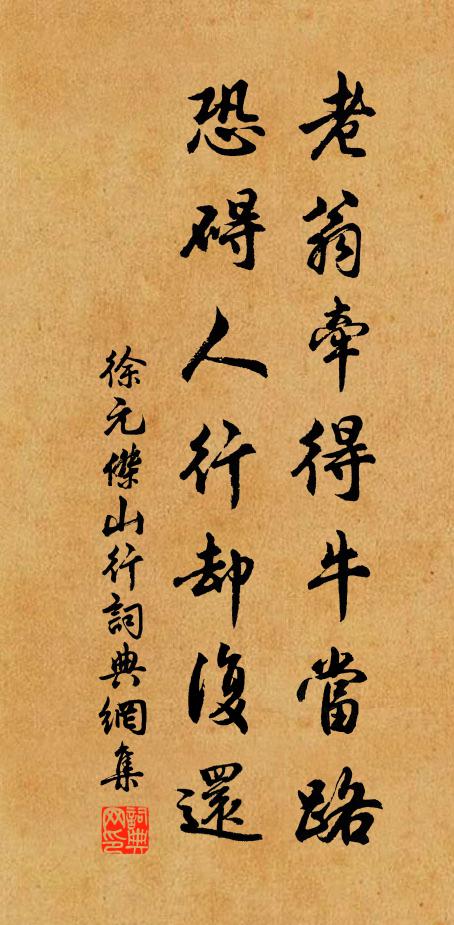 老翁牽得牛當路
恐碍人行却復還
徐元傑山行詞典網集
詞典網印